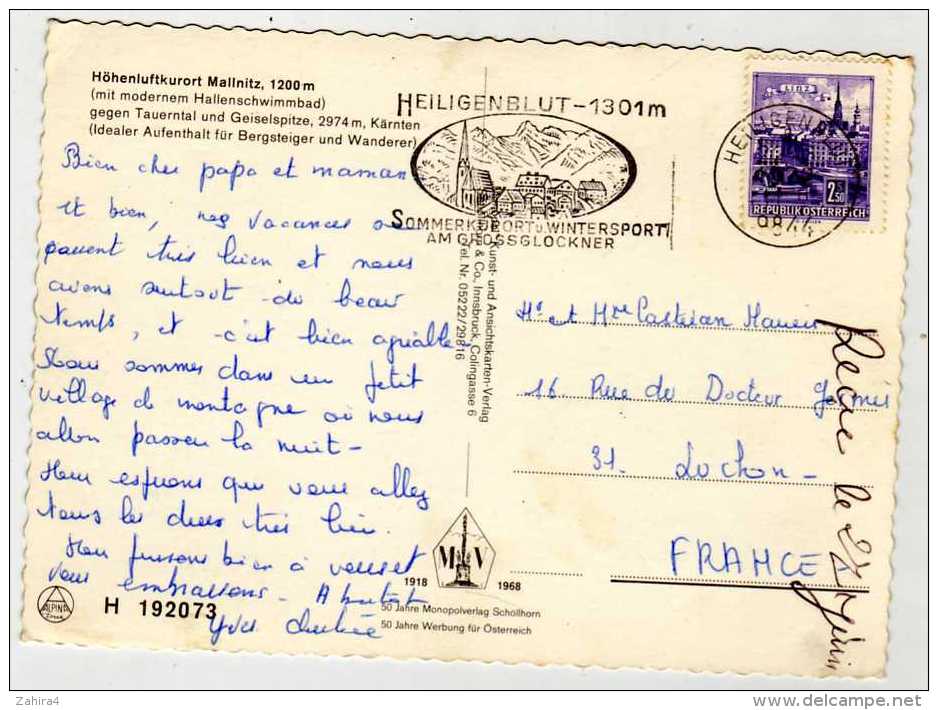 Höhenluftkurort Mallnitz, 1200 m
(mit modernem Hallenschwimmbad)
gegen Tauerntal und Geiselspitze, 2974 m, Kärnten
(Idealer Aufenthalt für Bergsteiger und Wanderer)
HEILIGENBLUT-1301m
SOMMERKURORT U. WINTERSPORT
AM GROSSGLOCKNER
LINZ
2.50
REPUBLIK ÖSTERREICH
HEILIGEN
9844
Bien cher papa et maman
et bien, nos vacances se
passent très bien et nous
avons surtout du beau
temps, et c'est bien agréable.
Nous sommes dans un petit
village de montagne où nous
allons passer la nuit -
Nous espérons que vous allez
tous les deux très bien.
Nous pensons bien à vous et
vous embrassons - A bientôt
Yves
Kunst- und Ansichtskarten-Verlag
& Co., Innsbruck, Colingasse 6
Tel. Nr. 05222/29816
Mr et Mme Castéran
16 Rue du Docteur
31. Luchon -
FRANCE
le 25 juin
M V
1918 1968
50 Jahre Monopolverlag Schöllhorn
50 Jahre Werbung für Österreich
ALPINA
H 192073
Zahira4
delcampe.net